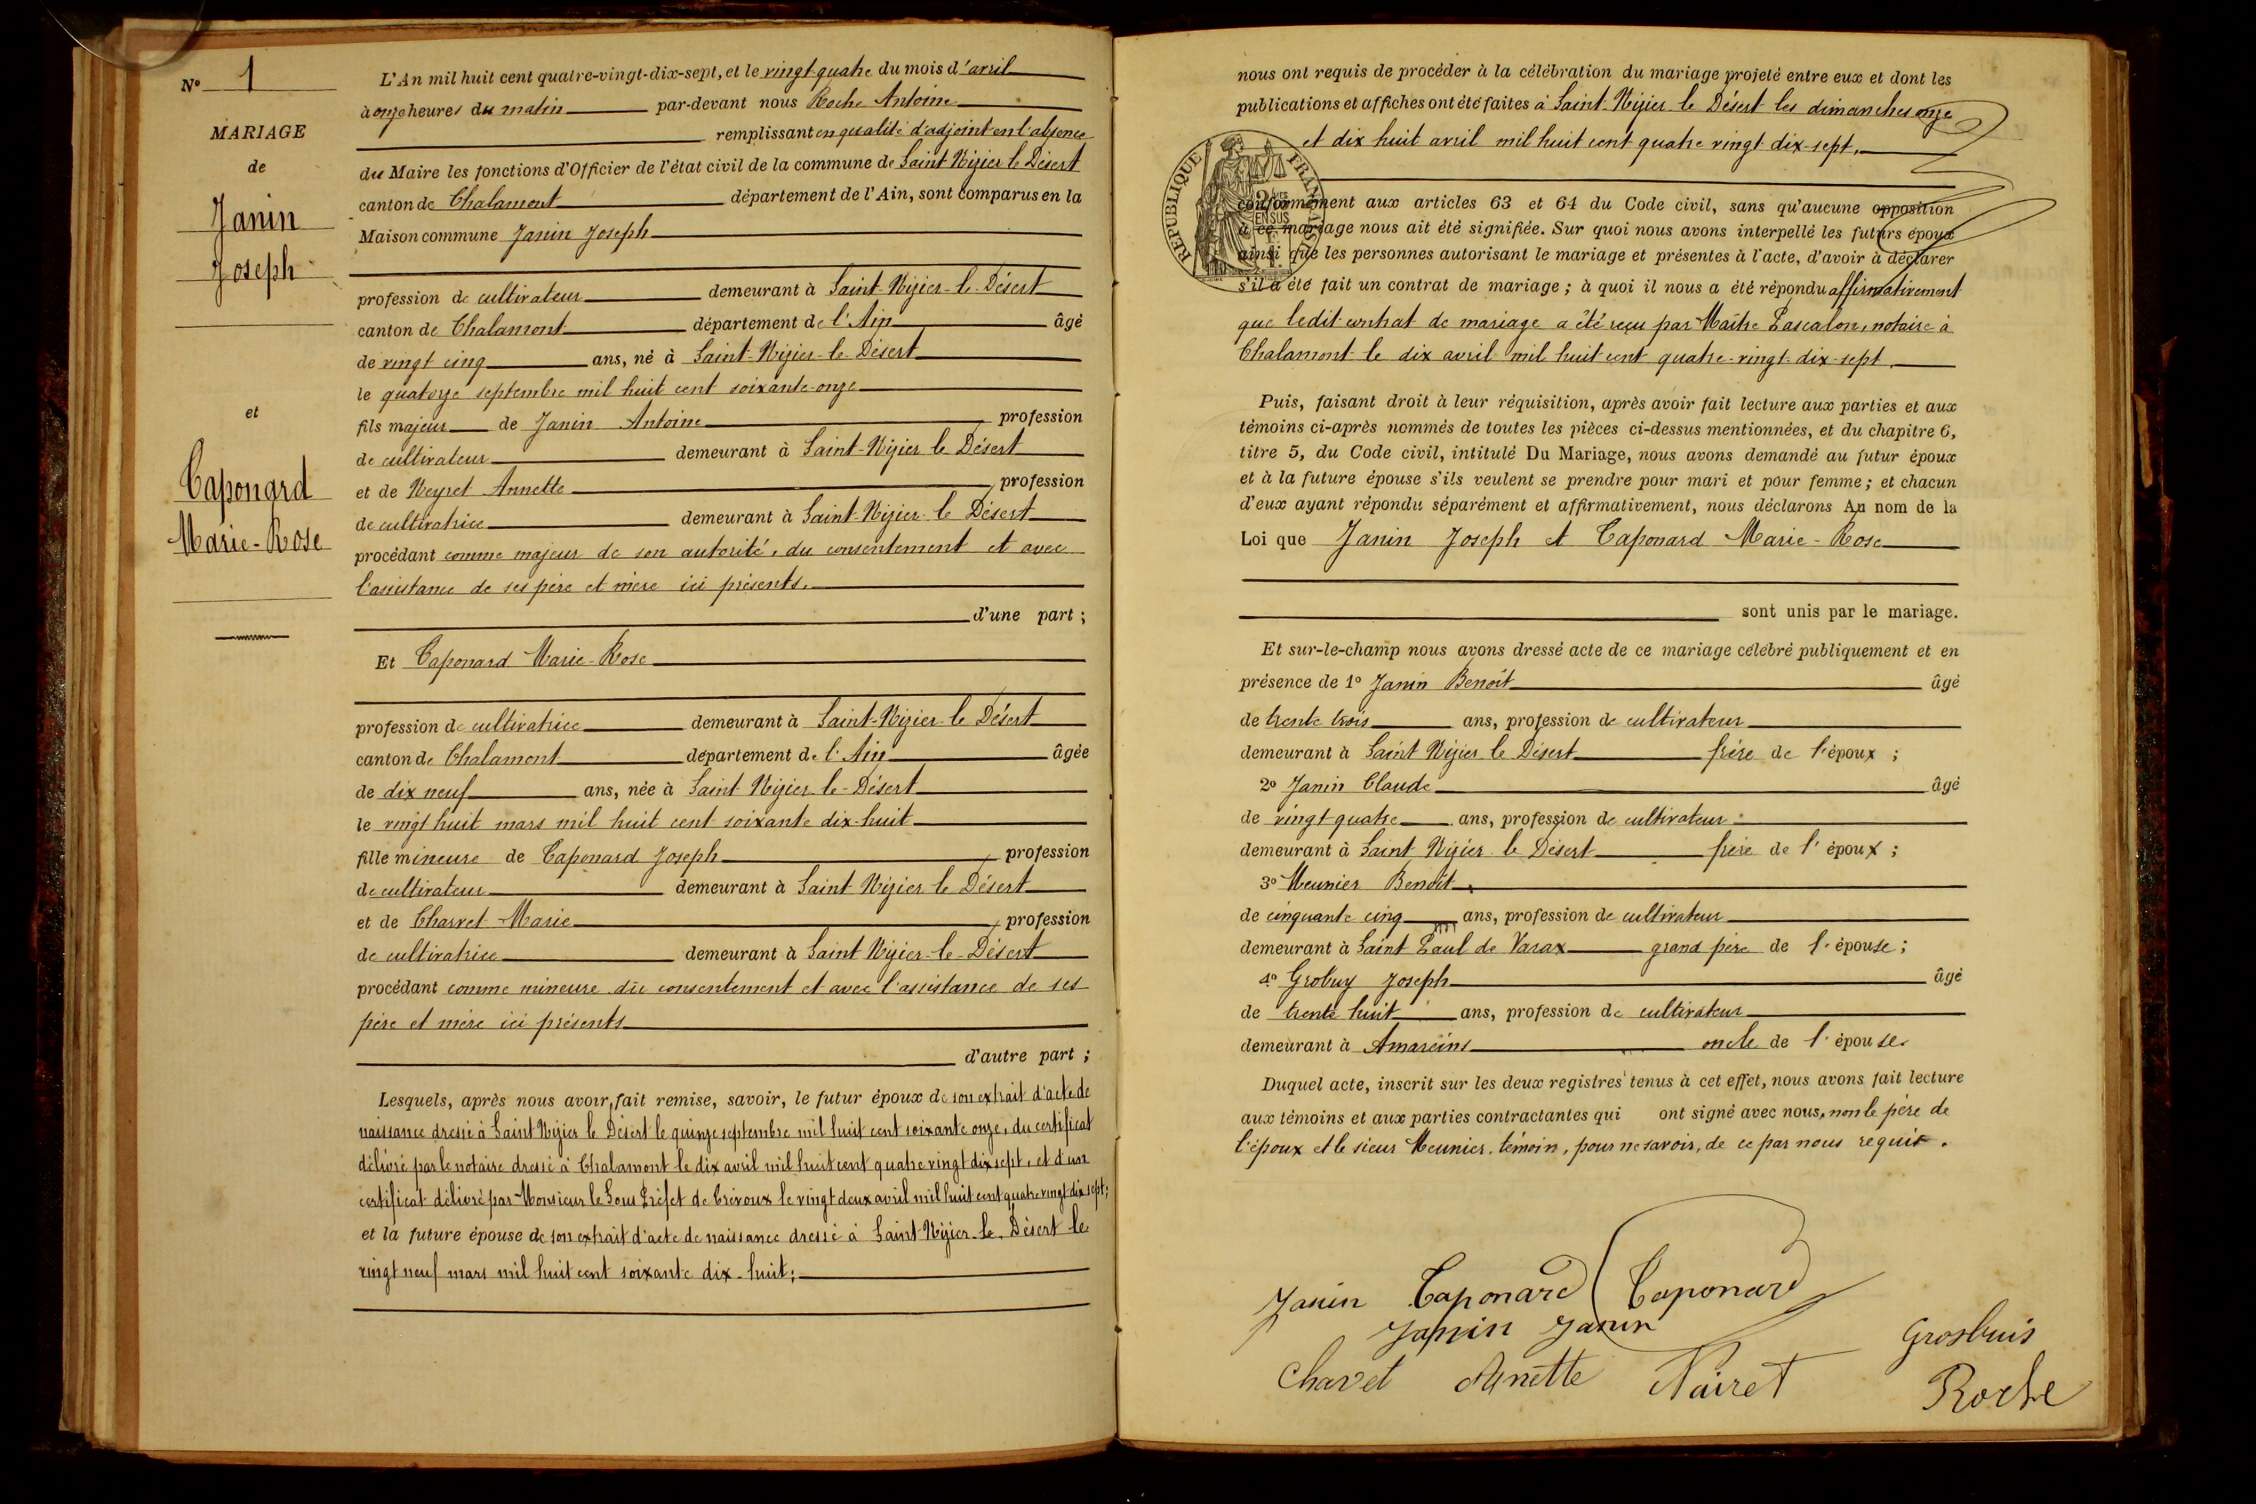 N° 1
MARIAGE
de
Janin
Joseph
et
Caponard
Marie-Rose
L'An mil huit cent quatre-vingt-dix-sept, et le vingt-quatre du mois d'avril
à onze heures du matin par-devant nous Roche Antoine
remplissant en qualité d'adjoint en l'absence
du Maire les fonctions d'Officier de l'état civil de la commune de Saint Nizier le Désert
canton de Chalamont département de l'Ain, sont comparus en la
Maison commune Janin Joseph
profession de cultivateur demeurant à Saint-Nizier-le-Désert
canton de Chalamont département de l'Ain âgé
de vingt cinq ans, né à Saint-Nizier-le-Désert
le quatorze septembre mil huit cent soixante-onze
fils majeur de Janin Antoine profession
de cultivateur demeurant à Saint-Nizier le Désert
et de Neyret Annette profession
de cultivatrice demeurant à Saint-Nizier-le Désert
procédant comme majeur de son autorité, du consentement et avec
l'assistance de ses père et mère ici présents.
d'une part ;
Et Caponard Marie-Rose
profession de cultivatrice demeurant à Saint-Nizier-le Désert
canton de Chalamont département de l'Ain âgée
de dix neuf ans, née à Saint-Nizier-le-Désert
le vingt huit mars mil huit cent soixante dix-huit
fille mineure de Caponard Joseph profession
de cultivateur demeurant à Saint Nizier le Désert
et de Charvet Marie profession
de cultivatrice demeurant à Saint Nizier-le-Désert
procédant comme mineure du consentement et avec l'assistance de ses
père et mère ici présents
d'autre part ;
Lesquels, après nous avoir fait remise, savoir, le futur époux de son extrait d'acte de
naissance dressé à Saint Nizier le Désert le quinze septembre mil huit cent soixante onze, du certificat
délivré par le notaire dressé à Chalamont le dix avril mil huit cent quatre vingt dix sept, et d'un
certificat délivré par Monsieur le Sous Préfet de Trévoux le vingt deux avril mil huit cent quatre vingt dix sept;
et la future épouse de son extrait d'acte de naissance dressé à Saint-Nizier-le-Désert le
vingt neuf mars mil huit cent soixante dix-huit;
nous ont requis de procéder à la célébration du mariage projeté entre eux et dont les
publications et affiches ont été faites à Saint-Nizier le Désert les dimanches onze
et dix huit avril mil huit cent quatre vingt dix-sept,
RÉPUBLIQUE FRANÇAISE
conformément aux articles 63 et 64 du Code civil, sans qu'aucune opposition
à ce mariage nous ait été signifiée. Sur quoi nous avons interpellé les futurs époux
ainsi que les personnes autorisant le mariage et présentes à l'acte, d'avoir à déclarer
s'il a été fait un contrat de mariage ; à quoi il nous a été répondu affirmativement
que ledit contrat de mariage a été reçu par Maître Pascalon, notaire à
Chalamont le dix avril mil huit cent quatre-vingt-dix-sept.
Puis, faisant droit à leur réquisition, après avoir fait lecture aux parties et aux
témoins ci-après nommés de toutes les pièces ci-dessus mentionnées, et du chapitre 6,
titre 5, du Code civil, intitulé Du Mariage, nous avons demandé au futur époux
et à la future épouse s'ils veulent se prendre pour mari et pour femme ; et chacun
d'eux ayant répondu séparément et affirmativement, nous déclarons Au nom de la
Loi que Janin Joseph et Caponard Marie-Rose
sont unis par le mariage.
Et sur-le-champ nous avons dressé acte de ce mariage célébré publiquement et en
présence de 1° Janin Benoît âgé
de trente trois ans, profession de cultivateur
demeurant à Saint Nizier le Désert frère de l'époux ;
2° Janin Claude âgé
de vingt quatre ans, profession de cultivateur
demeurant à Saint Nizier le Désert frère de l'époux ;
3° Meunier Benoît
de cinquante cinq ans, profession de cultivateur
demeurant à Saint Paul de Varax grand père de l'épouse ;
4° Grobuy Joseph âgé
de trente huit ans, profession de cultivateur
demeurant à Amareins oncle de l'épouse.
Duquel acte, inscrit sur les deux registres tenus à cet effet, nous avons fait lecture
aux témoins et aux parties contractantes qui ont signé avec nous, non le père de
l'époux et le sieur Meunier, témoin, pour ne savoir, de ce par nous requis.
Janin Caponard Caponard
Janin Janin Grosbuis
Charvet Anette Nairet Roche